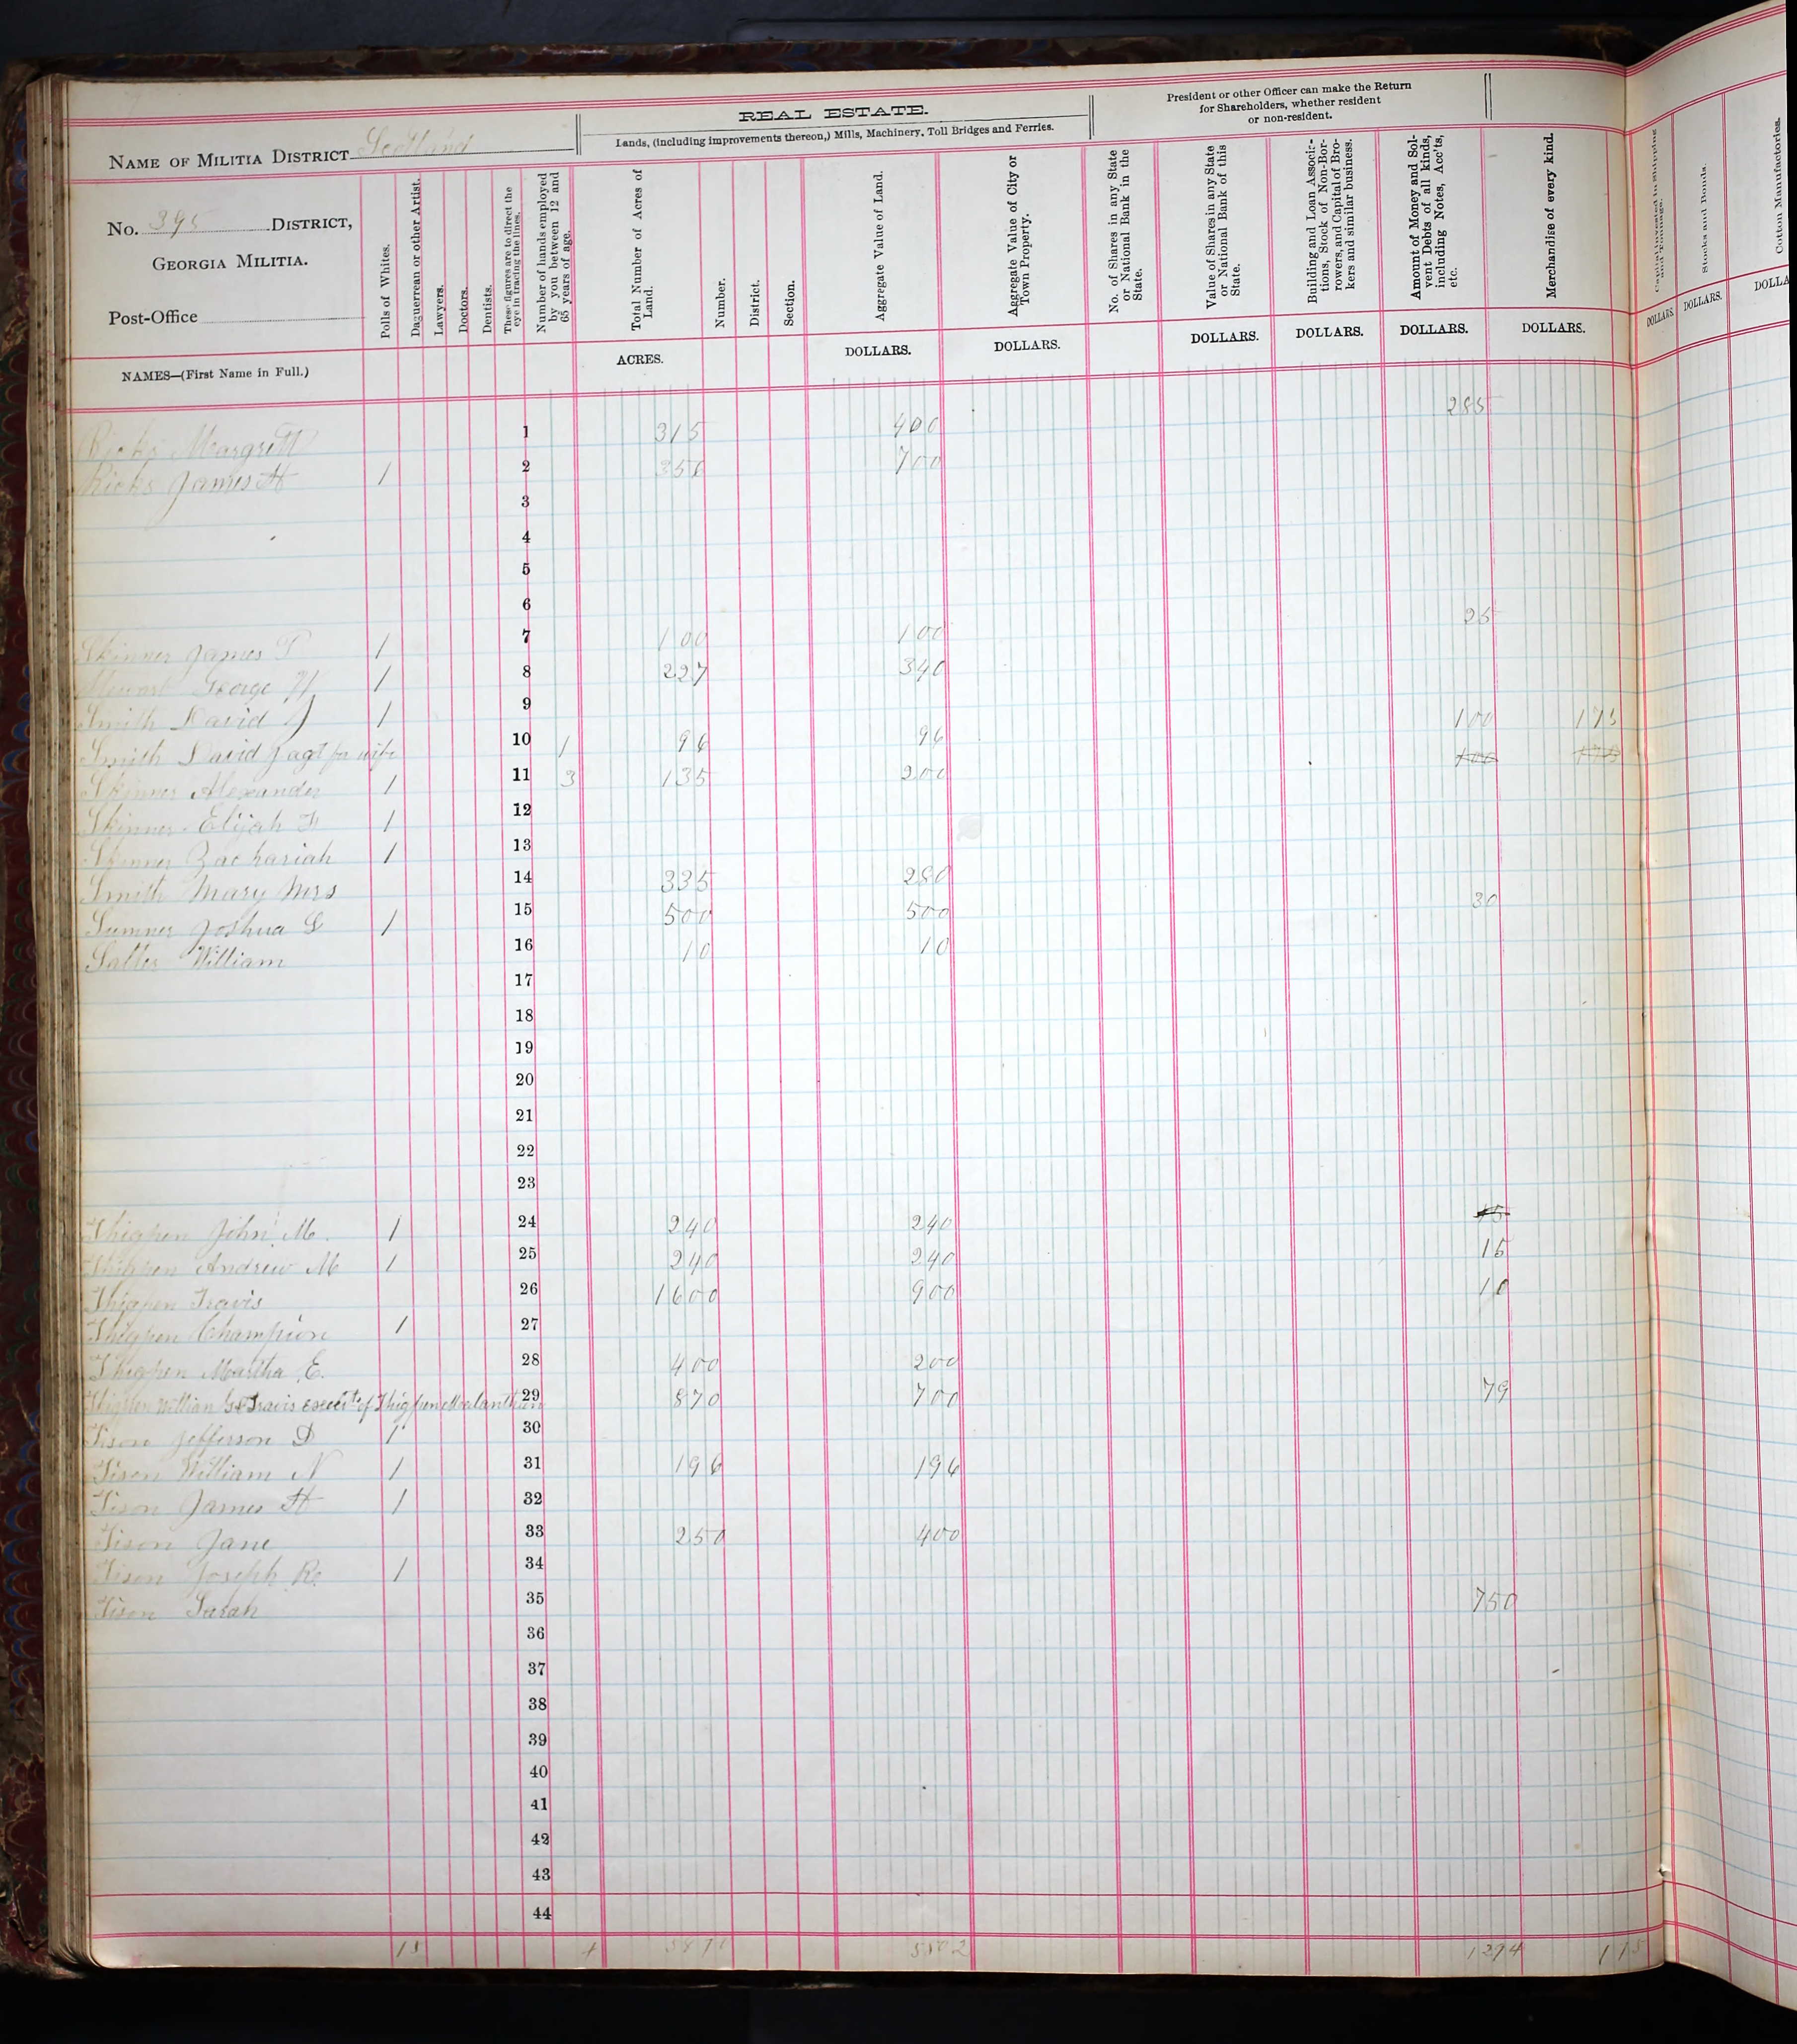 REAL ESTATE.
Lands, (including improvements thereon,) Mills, Machinery, Toll Bridges and Ferries.
President or other Officer can make the Return
for Shareholders, whether resident
or non-resident.
NAME OF MILITIA DISTRICT Scotland
No. 395 DISTRICT,
GEORGIA MILITIA.
Post-Office
NAMES—(First Name in Full.)
Polls of Whites.
Daguerrean or other Artist.
Lawyers.
Doctors.
Dentists.
These figures are to direct the
eye in tracing the lines.
Number of hands employed
by you between 12 and
65 years of age.
Total Number of Acres of
Land.
ACRES.
Number.
District.
Section.
Aggregate Value of Land.
DOLLARS.
Aggregate Value of City or
Town Property.
DOLLARS.
No. of Shares in any State
or National Bank in the
State.
Value of Shares in any State
or National Bank of this
State.
DOLLARS.
Building and Loan Associa-
tions, Stock of Non-Bor-
rowers, and Capital of Bro-
kers and similar business.
DOLLARS.
Amount of Money and Sol-
vent Debts of all kinds,
including Notes, Acc'ts,
etc.
DOLLARS.
Merchandise of every kind.
DOLLARS.
Capital Invested in Shipping
and Tonnage.
DOLLARS.
Stocks and Bonds.
DOLLARS.
Cotton Manufactories.
DOLLA
Ricks Margrett 1 315 400 285
Ricks James H 1 2 356 700
3
4
5
6
Skinner James P 1 7 100 100 25
Stewart George W 1 8 227 340
Smith David J 1 9 100 175
Smith David J agt for wife 10 1 96 96 100 175
Skinner Alexander 1 11 3 135 200
Skinner Elijah F 1 12
Skinner Zachariah 1 13
Smith Mary Mrs 14 335 280
Sumner Joshua L 1 15 500 500 30
Salter William 16 10 10
17
18
19
20
21
22
23
Thigpen John M. 1 24 240 240 15
Thigpen Andrew M 1 25 240 240 15
Thigpen Travis 26 1600 900 10
Thigpen Champion 1 27
Thigpen Martha E. 28 400 200
Thigpen William & Travis of Thigpen 29 870 700 79
Tison Jefferson D 1 30
Tison William N 1 31 196 196
Tison James H 1 32
Tison Jane 33 250 400
Tison Joseph R. 1 34
Tison Sarah 35 750
36
37
38
39
40
41
42
43
44
15 4 5502 1294